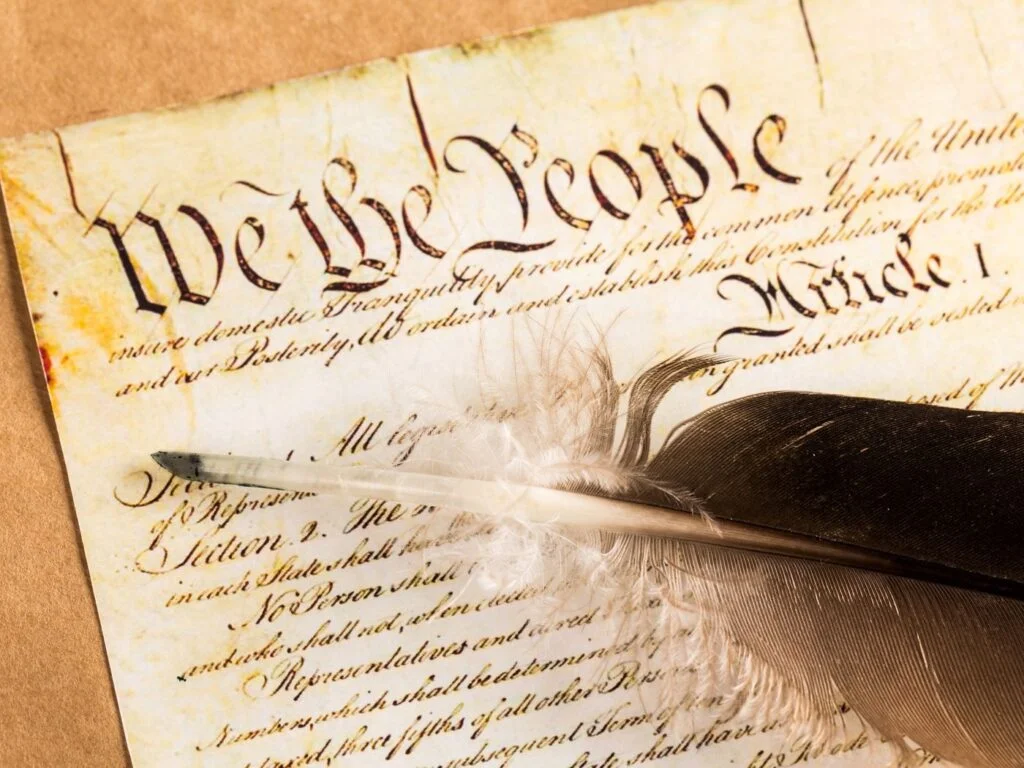 We the People of the Unite
insure domestic Tranquility, provide for the common defence, promote
and our Posterity, do ordain and establish this Constitution for the
Article. I.
granted shall be vested
All legisl
of Represen
Section. 2. The
in each State shall have
No Person shall
and who shall not, when elected
Representatives and direct Taxes
Numbers, which shall be determined by
three fifths of all other Persons
subsequent Term of ten
State shall have